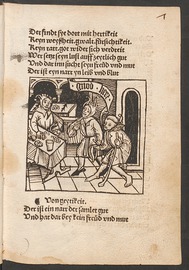 Der findt sye dort mit hertikeit
Keyn wyßheit, gwalt, fürsichtikeit
Keyn ratt, got wider sich verdreit
Wer setzt syn lust uff zyttlich gut
Und dar inn sucht syn freüd und mut
Der ist eyn narr jn lyb und blut
Von gyttikeit.
Der ist ein narr der samlet gut
Und hat dar by kein freüd und mut